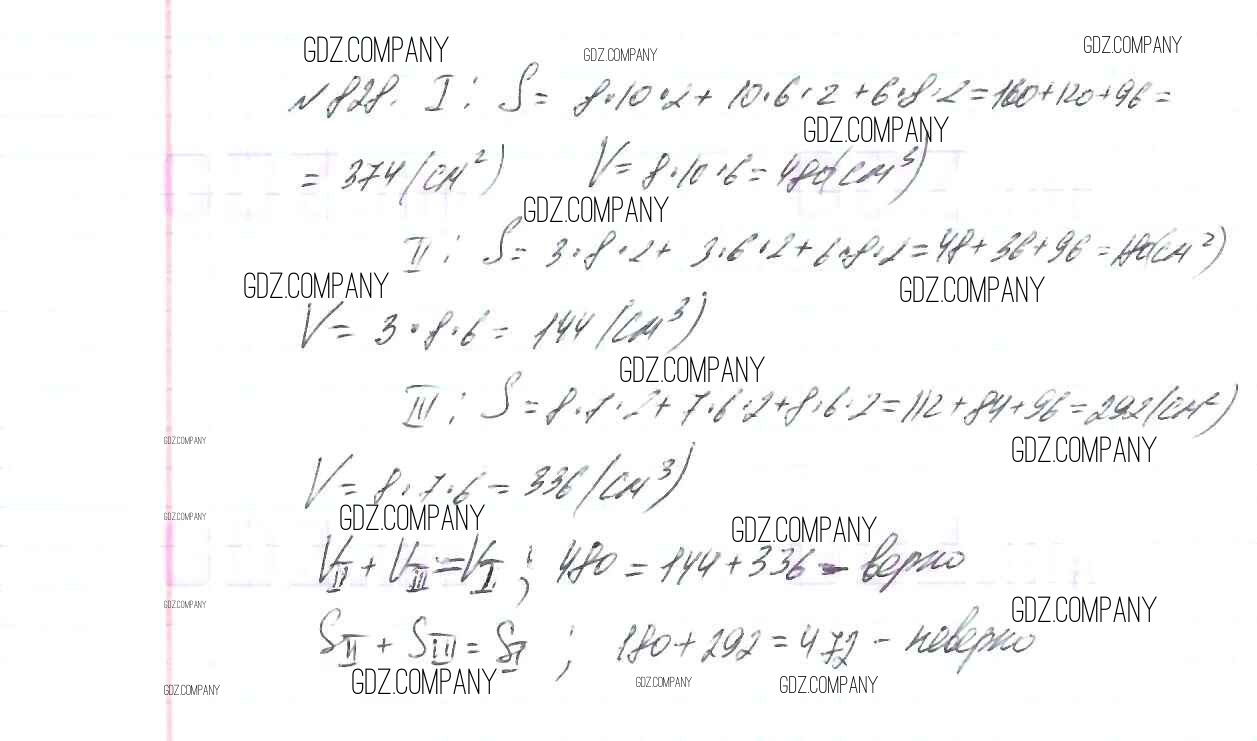 GDZ.COMPANY GDZ.COMPANY GDZ.COMPANY
№828. I: S = 8·10·2 + 10·6·2 + 6·8·2 = 160 + 120 + 96 =
GDZ.COMPANY
= 374 (см²) V = 8·10·6 = 480 (см³)
GDZ.COMPANY
II: S = 3·8·2 + 3·6·2 + 6·8·2 = 48 + 36 + 96 = 180 (см²)
GDZ.COMPANY GDZ.COMPANY
V = 3·8·6 = 144 (см³)
GDZ.COMPANY
III: S = 8·7·2 + 7·6·2 + 8·6·2 = 112 + 84 + 96 = 292 (см²)
GDZ.COMPANY GDZ.COMPANY
V = 8·7·6 = 336 (см³)
GDZ.COMPANY GDZ.COMPANY GDZ.COMPANY
V_II + V_III = V_I; 480 = 144 + 336 – верно
GDZ.COMPANY GDZ.COMPANY
S_II + S_III = S_I; 180 + 292 = 472 – неверно
GDZ.COMPANY GDZ.COMPANY GDZ.COMPANY GDZ.COMPANY